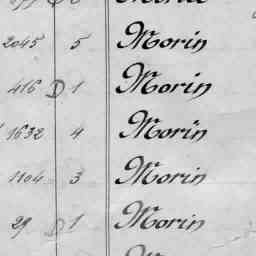 2045 5 Morin
416 D 1 Morin
1632 4 Morin
1104 3 Morin
29 D 1 Morin